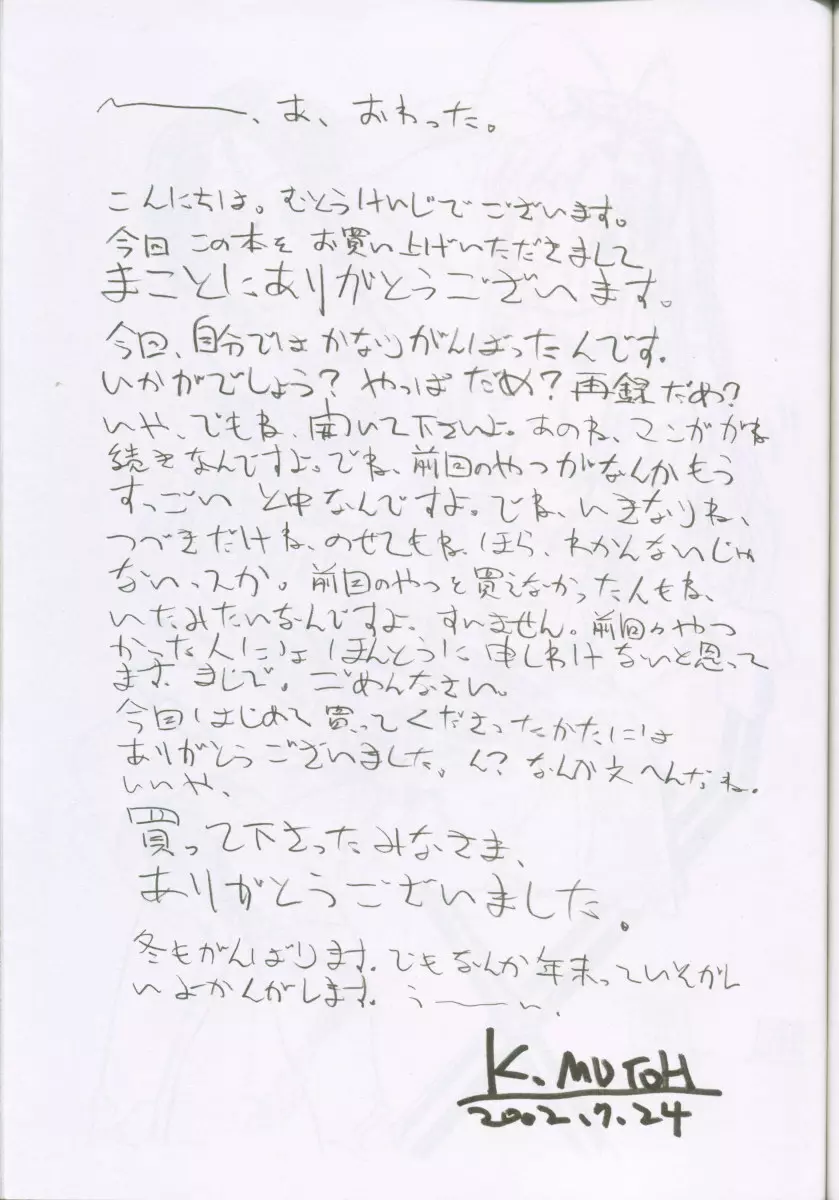 〜――、あ、おわった。
こんにちは。むとうけいじでございます。
今回この本をお買い上げいただきまして
まことにありがとうございます。
今回、自分ではかなりがんばったんです。
いかがでしょう？やっぱだめ？再録だめ？
いや、でもね、聞いて下さいよ。あのね、マンガがね
続きなんですよ。でね、前回のやつがなんかもう
すっごい と中なんですよ。でね、いきなりね、
つづきだけね、のせてもね、ほら、わかんないじゃ
ないっスか。前回のやつと買えなかった人もね、
いたみたいなんですよ、すいません。前回のやつ
かった人にはほんとうに申しわけないと思って
ます。まじで。ごめんなさい。
今回はじめて買ってくださったかたには
ありがとうございました。ん？なんか文へんだね。
いいや、
買って下さったみなさま、
ありがとうございました。
冬もがんばります。でもなんか年末っていそがし
いよかんがします。う――い、
K. MUTOH
2002.7.24